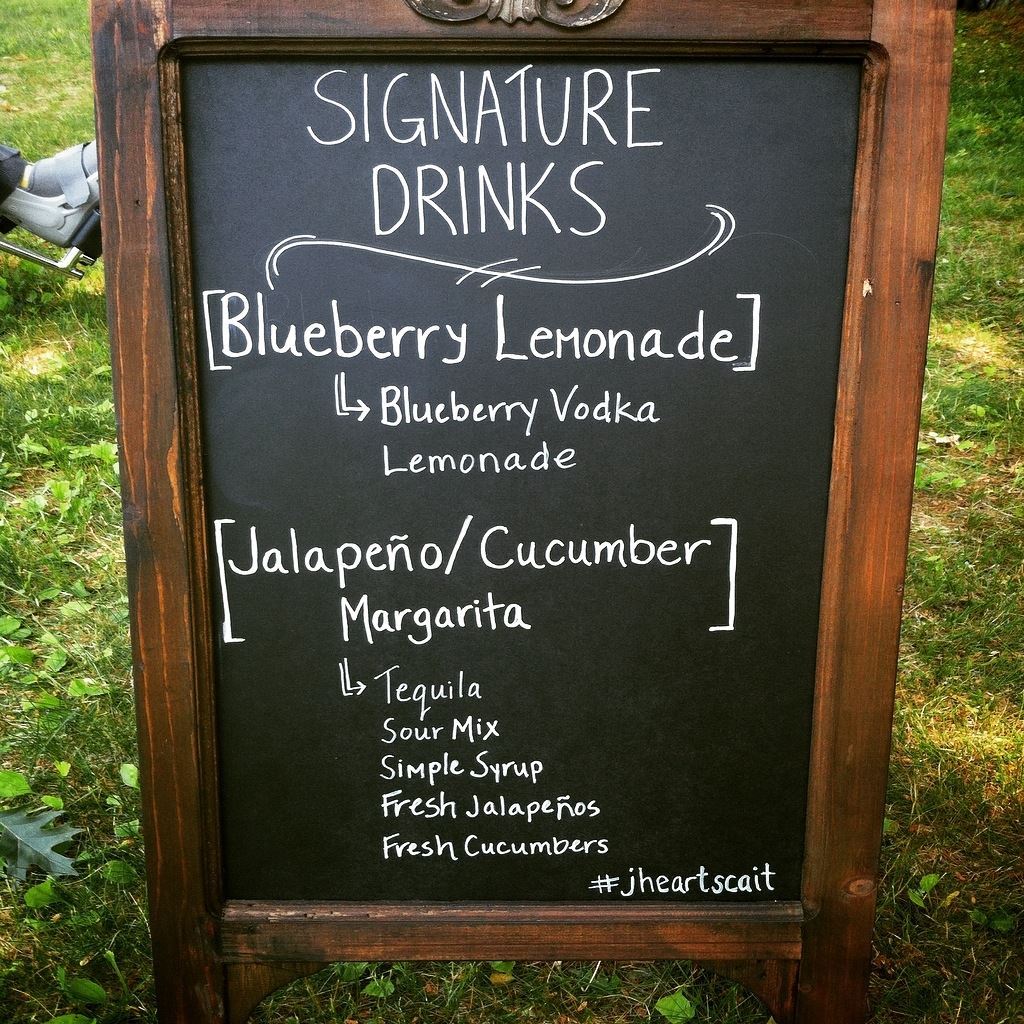 SIGNATURE
DRINKS
[Blueberry Lemonade]
Blueberry Vodka
Lemonade
[Jalapeño/Cucumber
Margarita]
Tequila
Sour Mix
Simple Syrup
Fresh Jalapeños
Fresh Cucumbers
#jheartscait